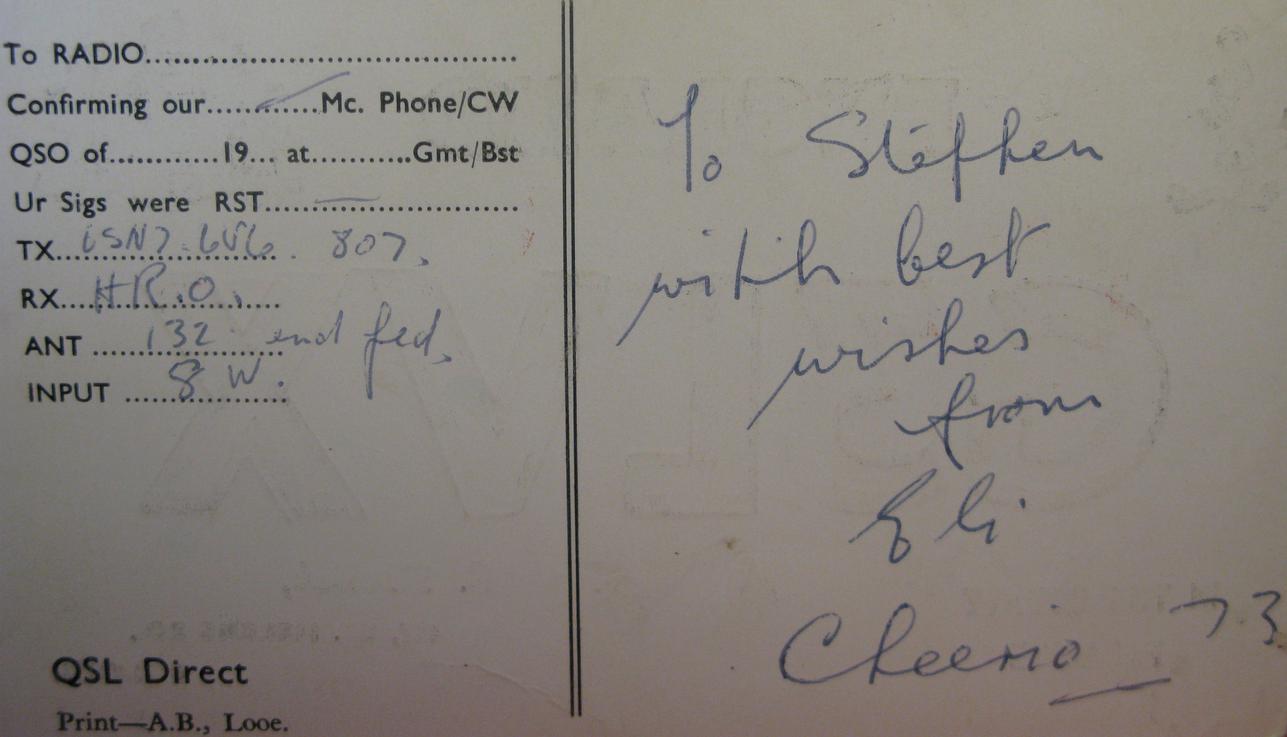 To RADIO..............................................
Confirming our...............Mc. Phone/CW
QSO of............19... at...........Gmt/Bst
Ur Sigs were RST..............................
TX 6SN7. 6V6. 807.
RX H.R.O.
ANT 132 end fed.
INPUT 8 W.
QSL Direct
Print—A.B., Looe.
To Stephen
with best
wishes
from
Eli
Cheerio 73